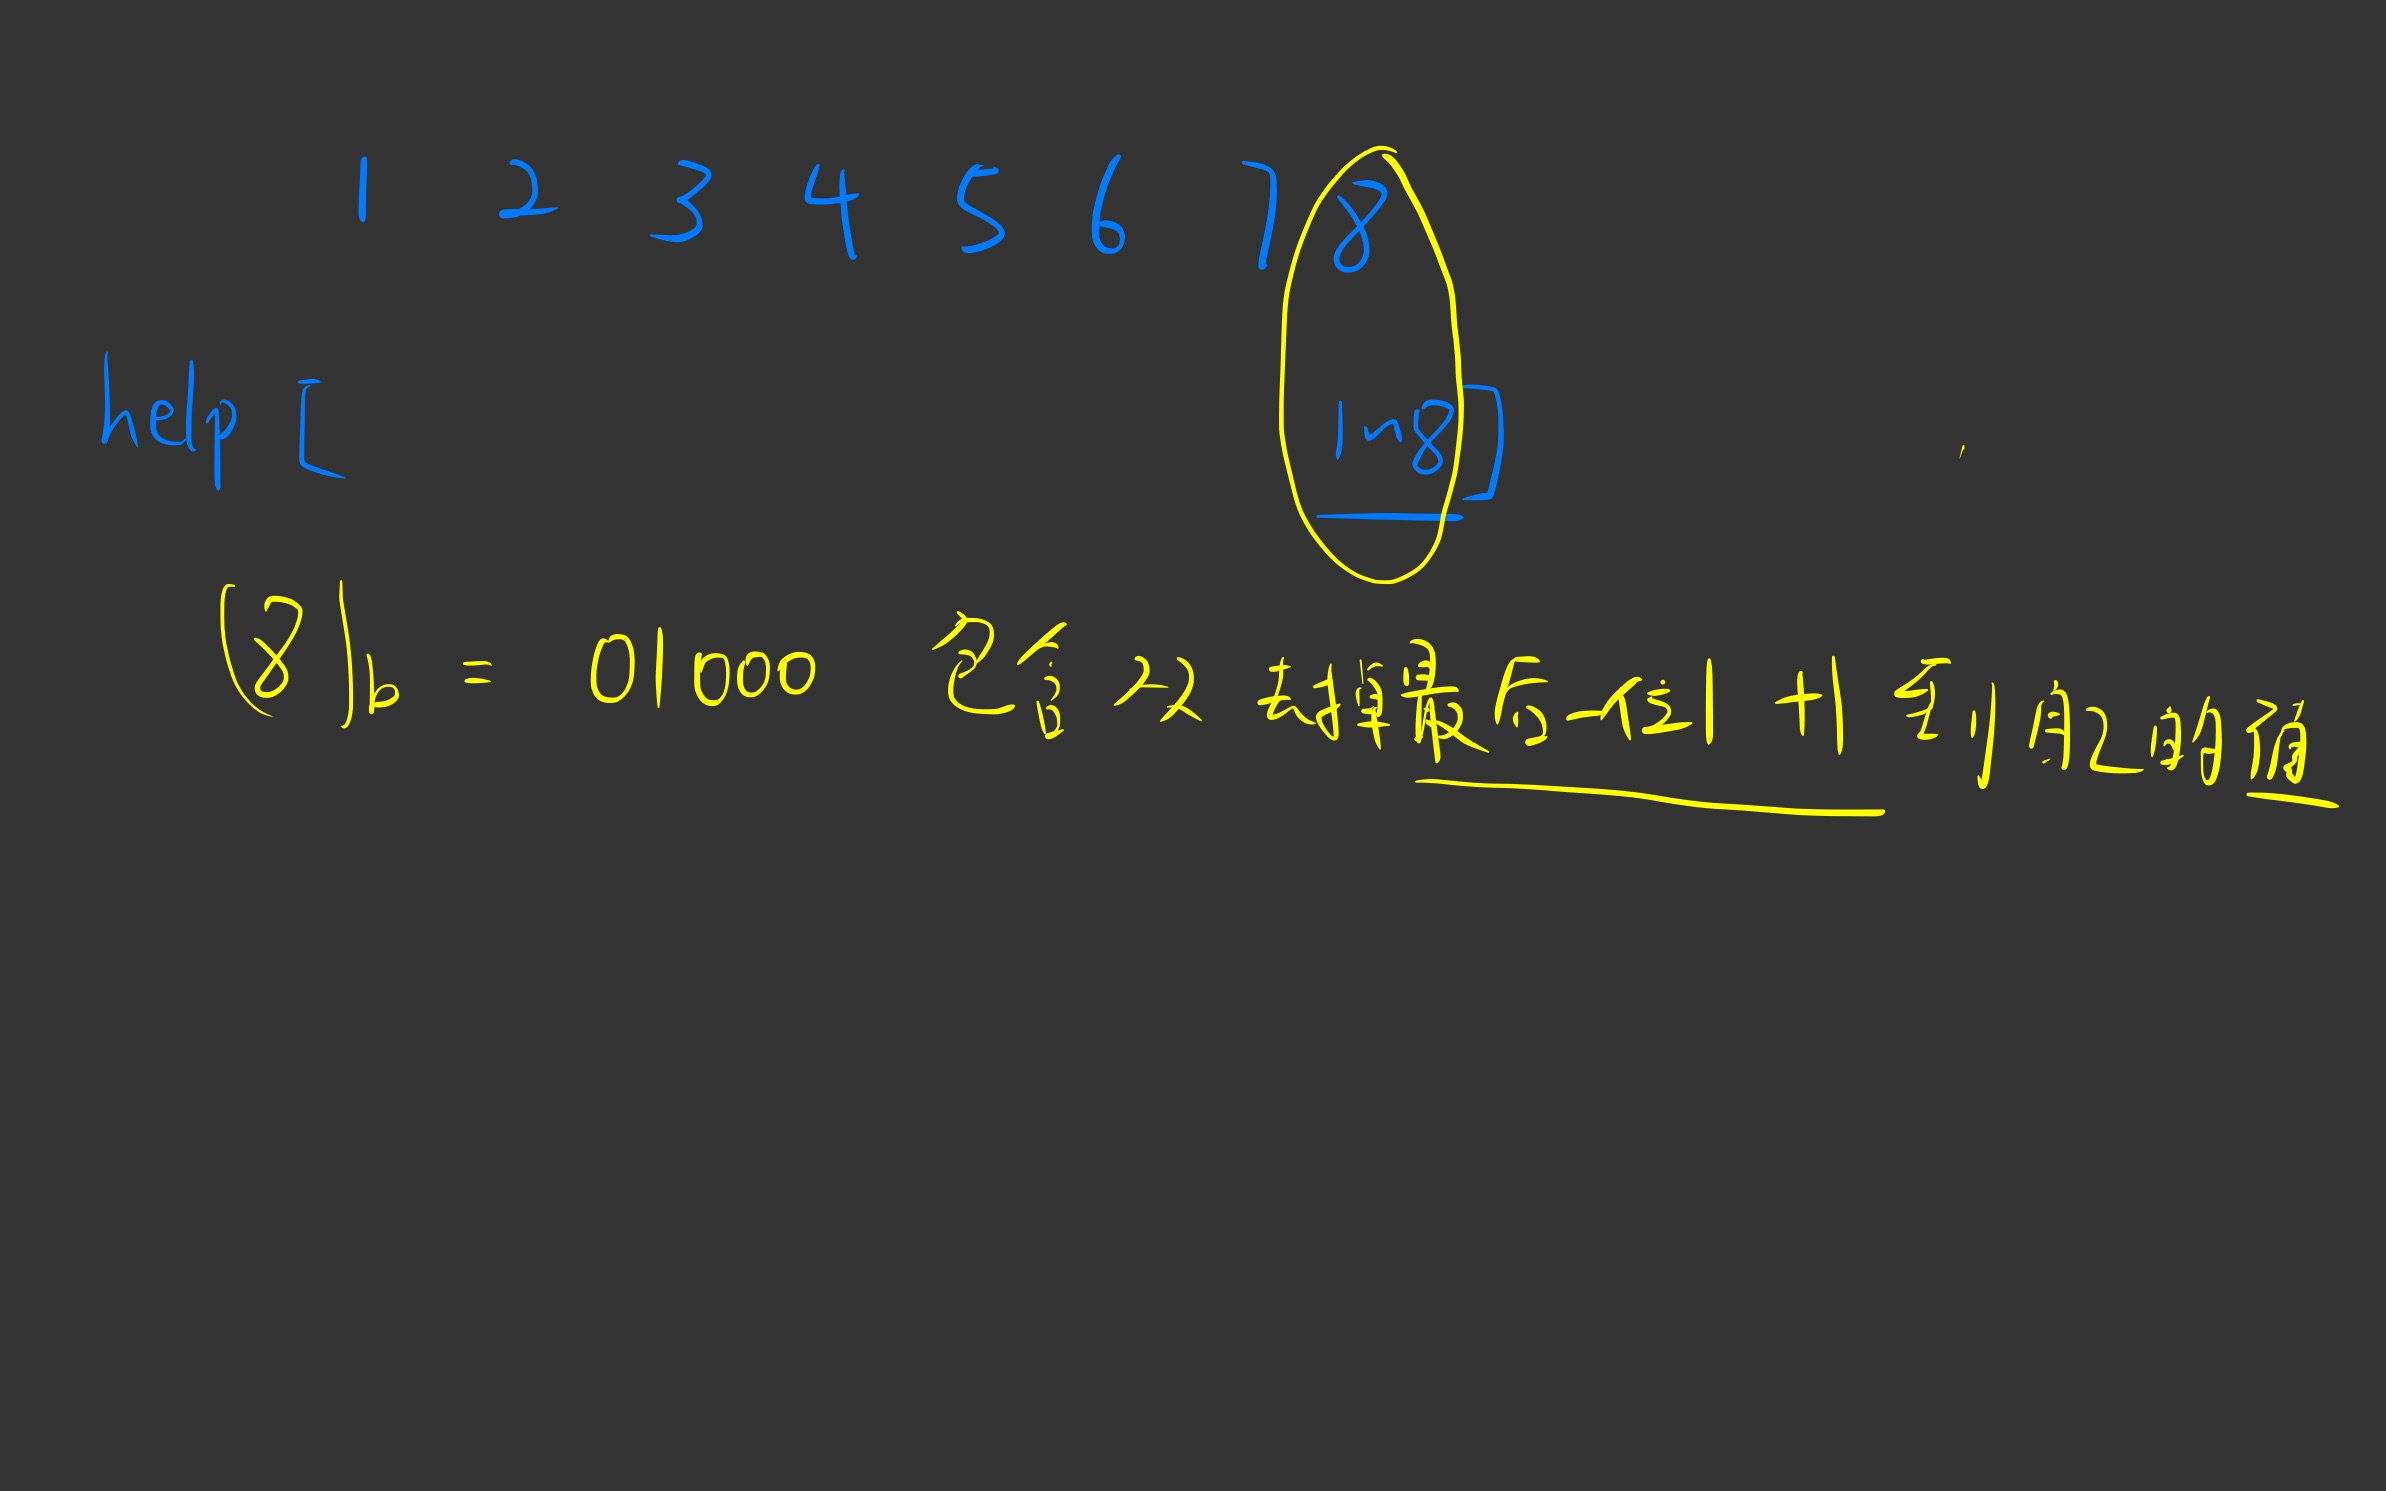 1 2 3 4 5 6 7 8
help [ 1~8 ]
(8)b = 01000 包含 从 去掉最后一个1 +1 到 原之前的值